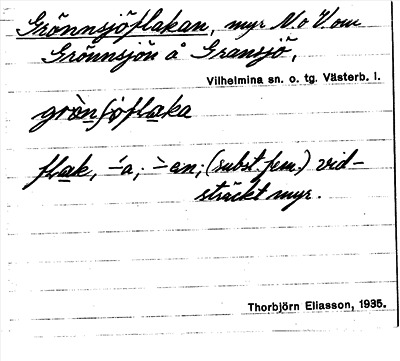 Grönnsjöflakan, myr N. o V. om
Grönnsjön å Gransjö,
Vilhelmina sn. o. tg. Västerb. l.
grònʃøflaka
flak, -́a; -̀en; (subst. fem.) vid-
sträckt myr.
Thorbjörn Eliasson, 1935.